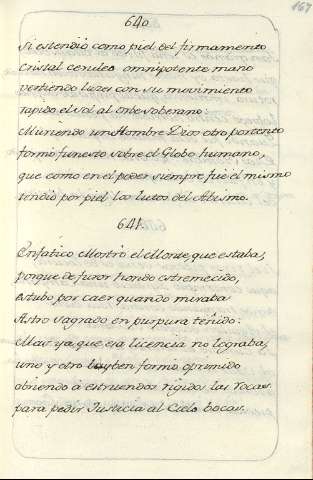 167
640
Si estendió como piel del firmamento
cristal ceruleo omnipotente mano
vertiendo luzes con su movimiento
rapido el sol al orbe soberano:
Muriendo un Hombre Dios otro portento
formó funesto sobre el Globo humano,
que como en el poder siempre fue el mismo
tendió por piel los lutos del Abismo.
641
Enfatico Mostró el Monte, que estaba,
porque de furor hondo estremecido,
estubo por caer quando miraba
Astro sagrado en purpura teñido:
Mas ya, que esa licencia no lograba,
uno y otro formó oprimido
abriendo á estruendos rigidos las rocas
para pedir Justicia al Cielo bocas.